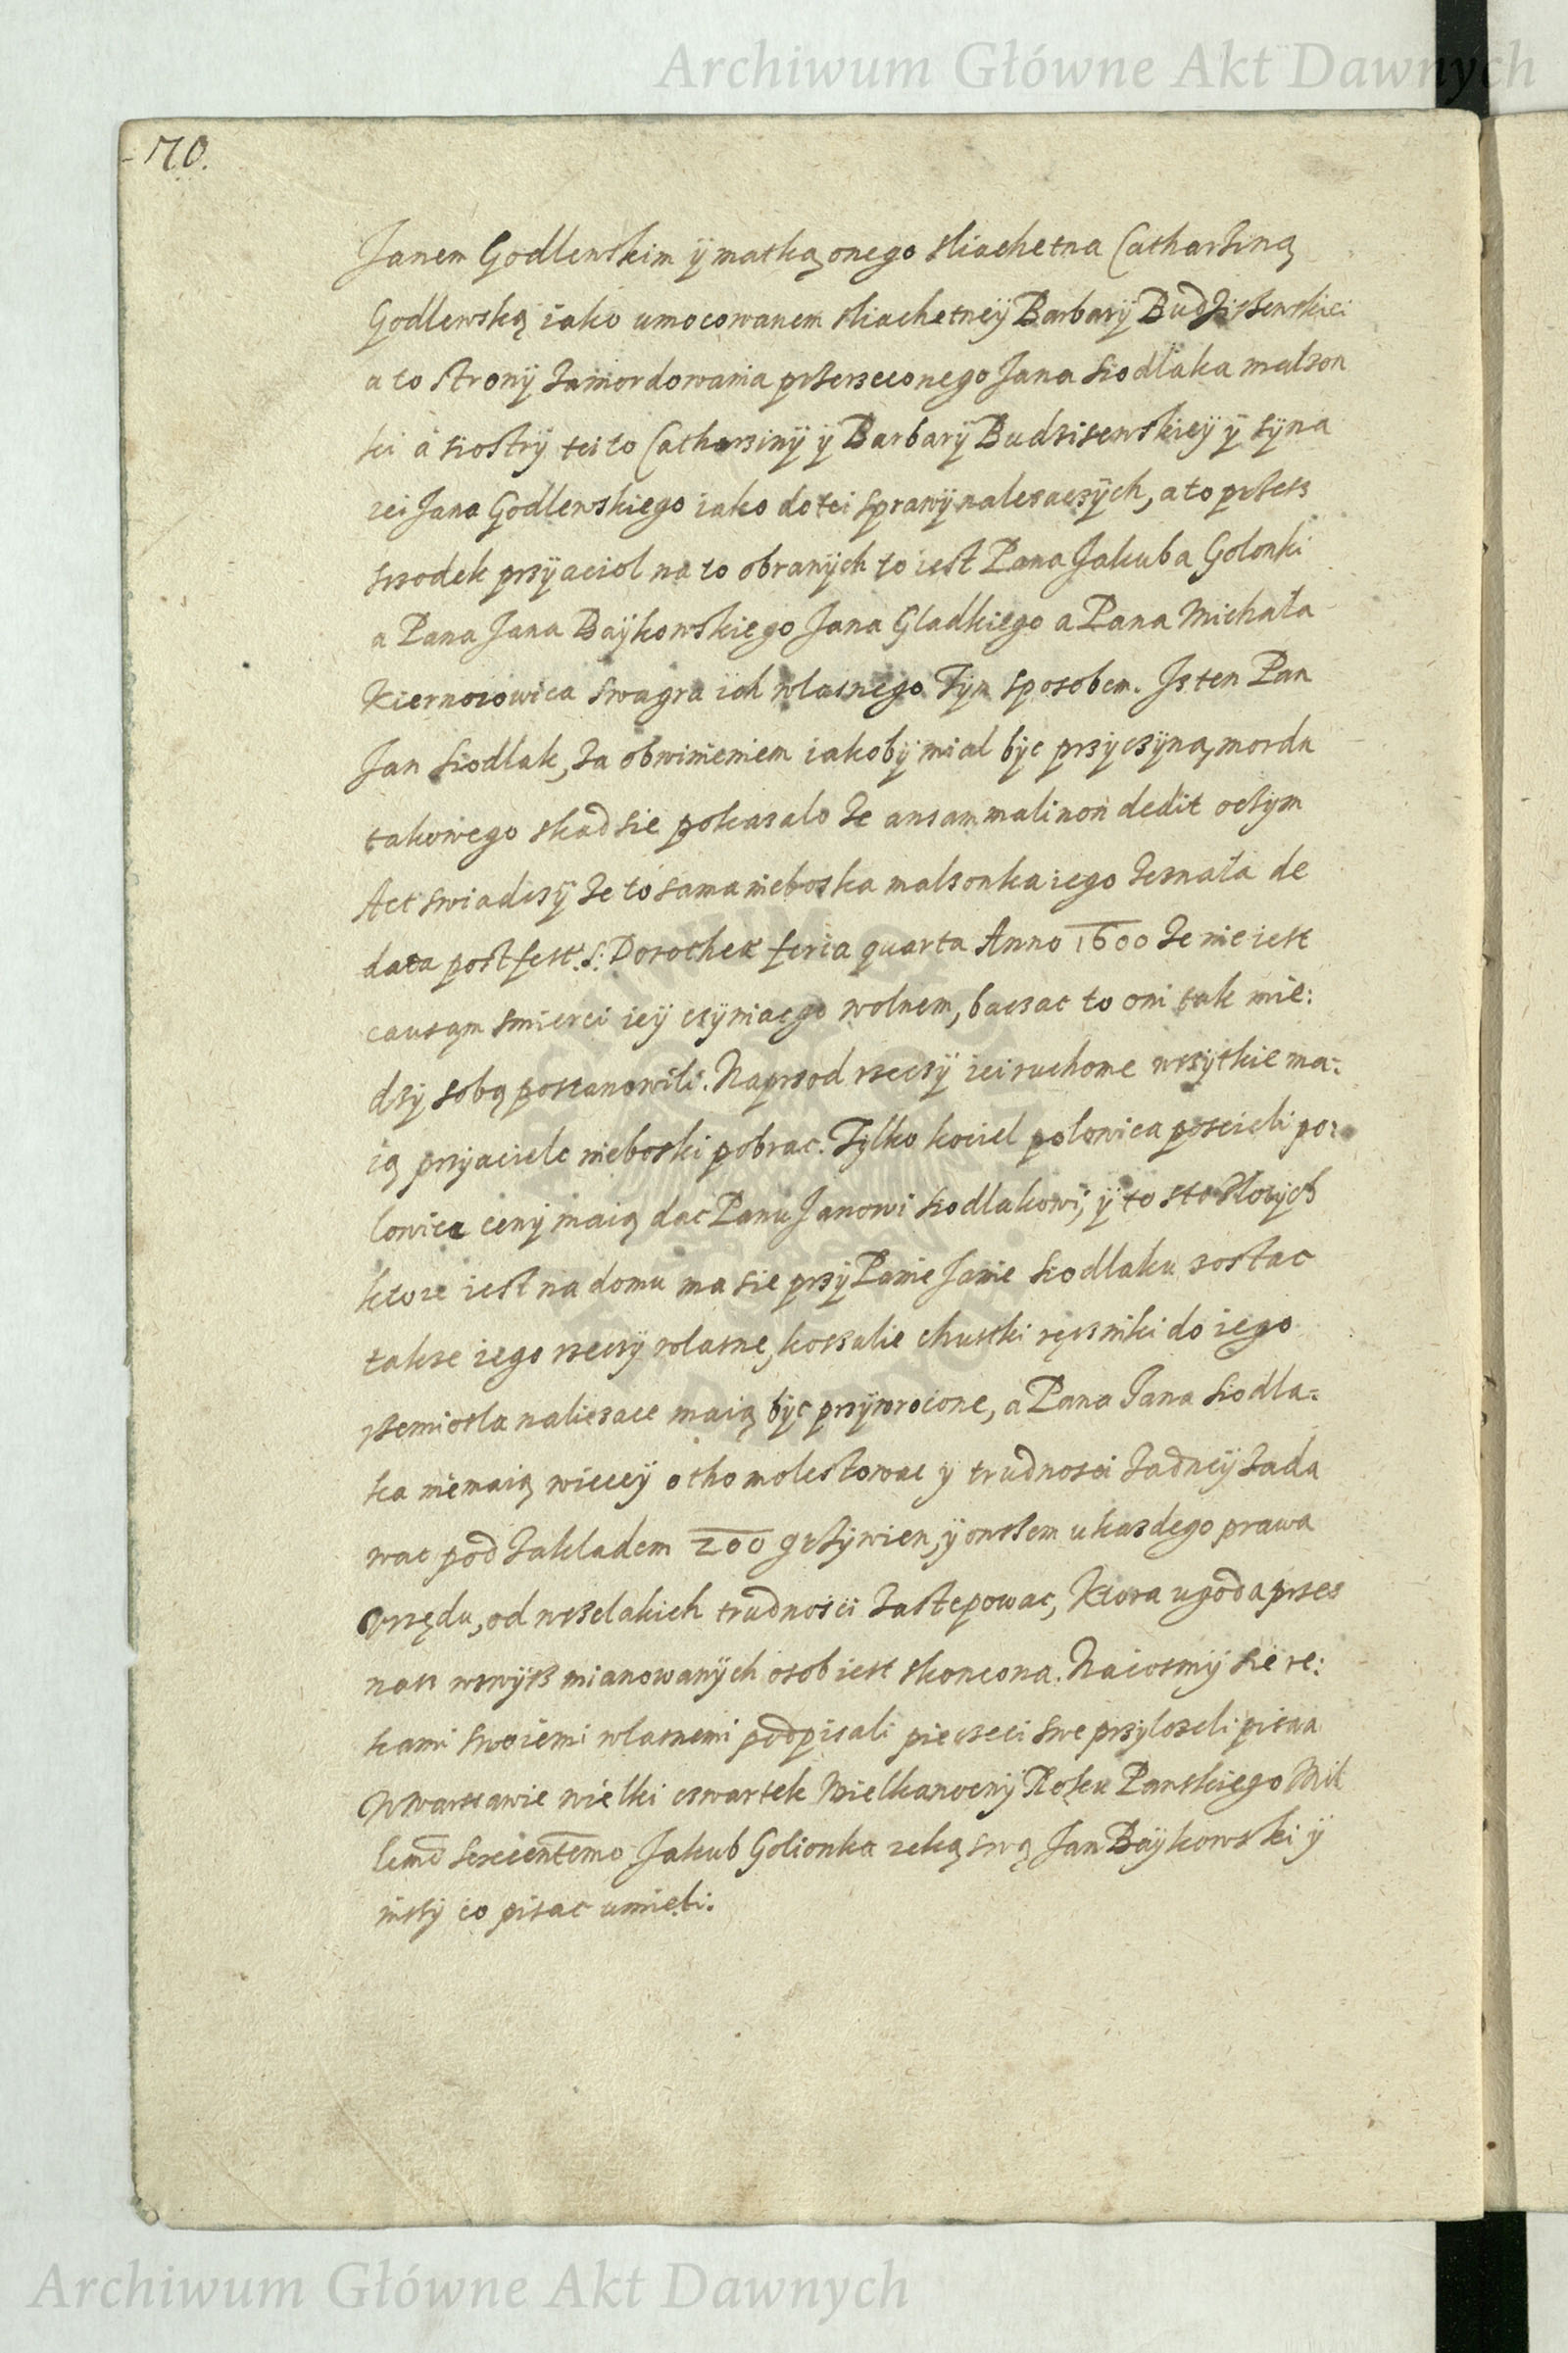 Archiwum Główne Akt Dawnych
70.
Janem Godlenskim ÿ matką onego sliachetna Catharziną
Godlewską iako umocowanem sliachetneÿ Barbarÿ Budziszenskiei
a to stronÿ zamordowania przerzeconego Jana Siodlaka malzon
ki a siostrÿ tei to Catharzinÿ ÿ Barbarÿ Budzisenskieÿ ÿ sÿna
iei Jana Godlenskiego iako do tei sprawÿ nalezaczÿch, a to przess
srzodek przÿaciol na to obranÿch to iest Pana Jakuba Golonki
a Pana Jana Baÿkowskiego Jana Gladkiego a Pana Michała
Kiernozowica swagra ich wlasnego Tÿm sposobem. Is ten Pan
Jan Siodlak, za obwinieniem iakobÿ mial bÿc przÿczÿną mordu
takowego skad sie pokazalo ze ansam mali non dedit oczÿm
Act swiadczÿ ze to sama nieboska malzonka iego zeznała de
data post fest: S: Dorotheæ feria quarta Anno 1600 ze nie iest
causąm smierci ieÿ czÿniac go wolnem, baczac to oni tak mie:
dzÿ sobą postanowili. Naprzod rzeczÿ iei ruchome wszÿtkie ma:
ią przÿaciele nieboski pobrac. Tÿlko kociel polowica poscieli po:
lowica cenÿ maią dac Panu Janowi Siodlakowi, ÿ to sto zlotÿch
ktore iest na domu ma sie przÿ Panie Janie Siodlaku zostac
takze iego rzeczÿ wlasne, koszulie chustki ręczniki do iego
rzemiosla naliezace maią bÿc przÿwrocione, a Pana Jana Siodla=
ka nie maią wieceÿ o tho molestowac y trudnosci zadneÿ zada
wac pod zakladem 200 grzÿwien, ÿ onszem u kazdego prawa
Vrzędu, od wszelakich trudnosci zastepowac, Ktora ugoda przes
nass wzwÿss mianowanÿch osob iest skonczona. Na cosmÿ sie re:
kami swoiemi wlasnemi podpisali pieczeci swe przÿlozeli pisan
W Warssawie wielki czwartek Wielkanocnÿ Roku Panskiego Mil
lemo sexcentemo Jakub Golionka reką swą Jan Baÿkowski ÿ
inszÿ co pisac umieli.
Archiwum Główne Akt Dawnych